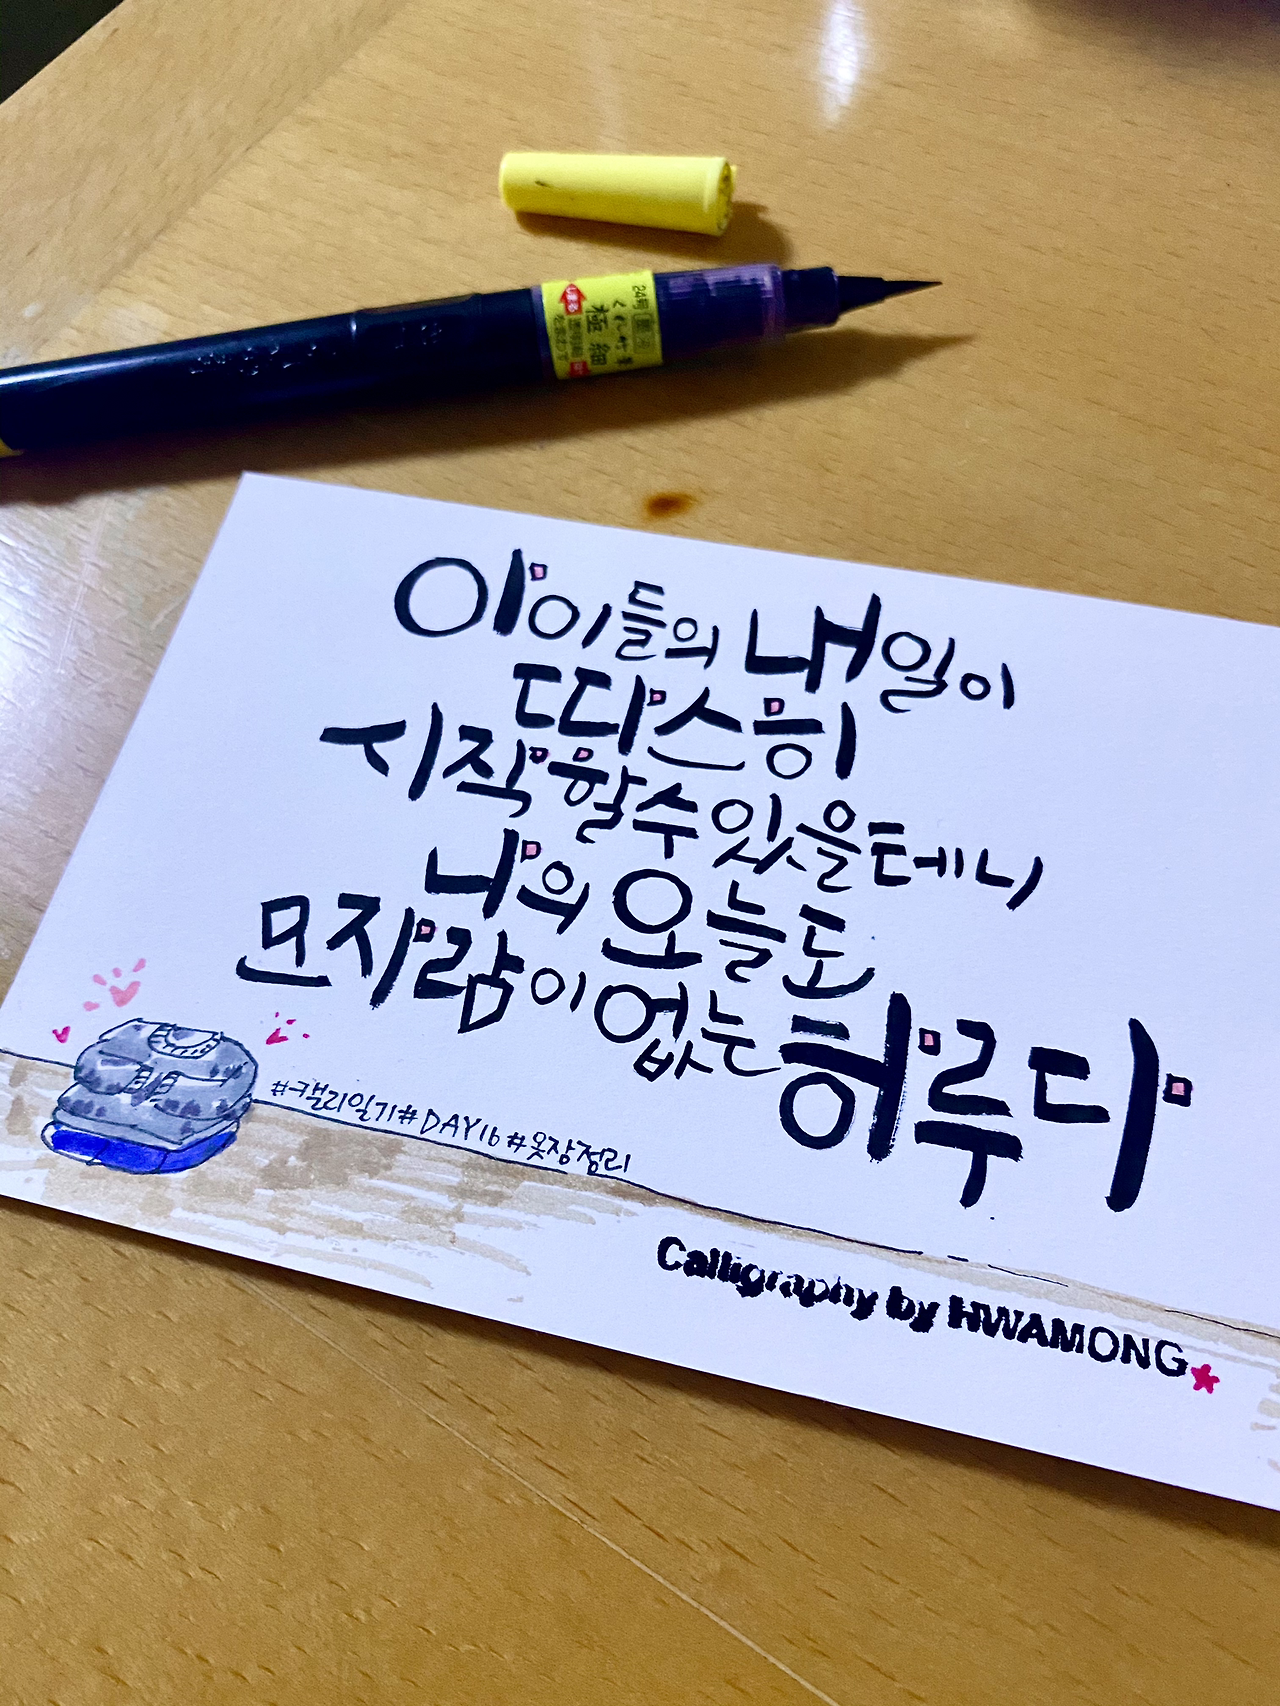 24号
くれ竹筆
極細
아이들의 내일이
따스히
시작할 수 있을테니
나의 오늘도
모자람이 없는 하루다
#캘리일기#DAY16#옷장정리
Calligraphy by HWAMONG